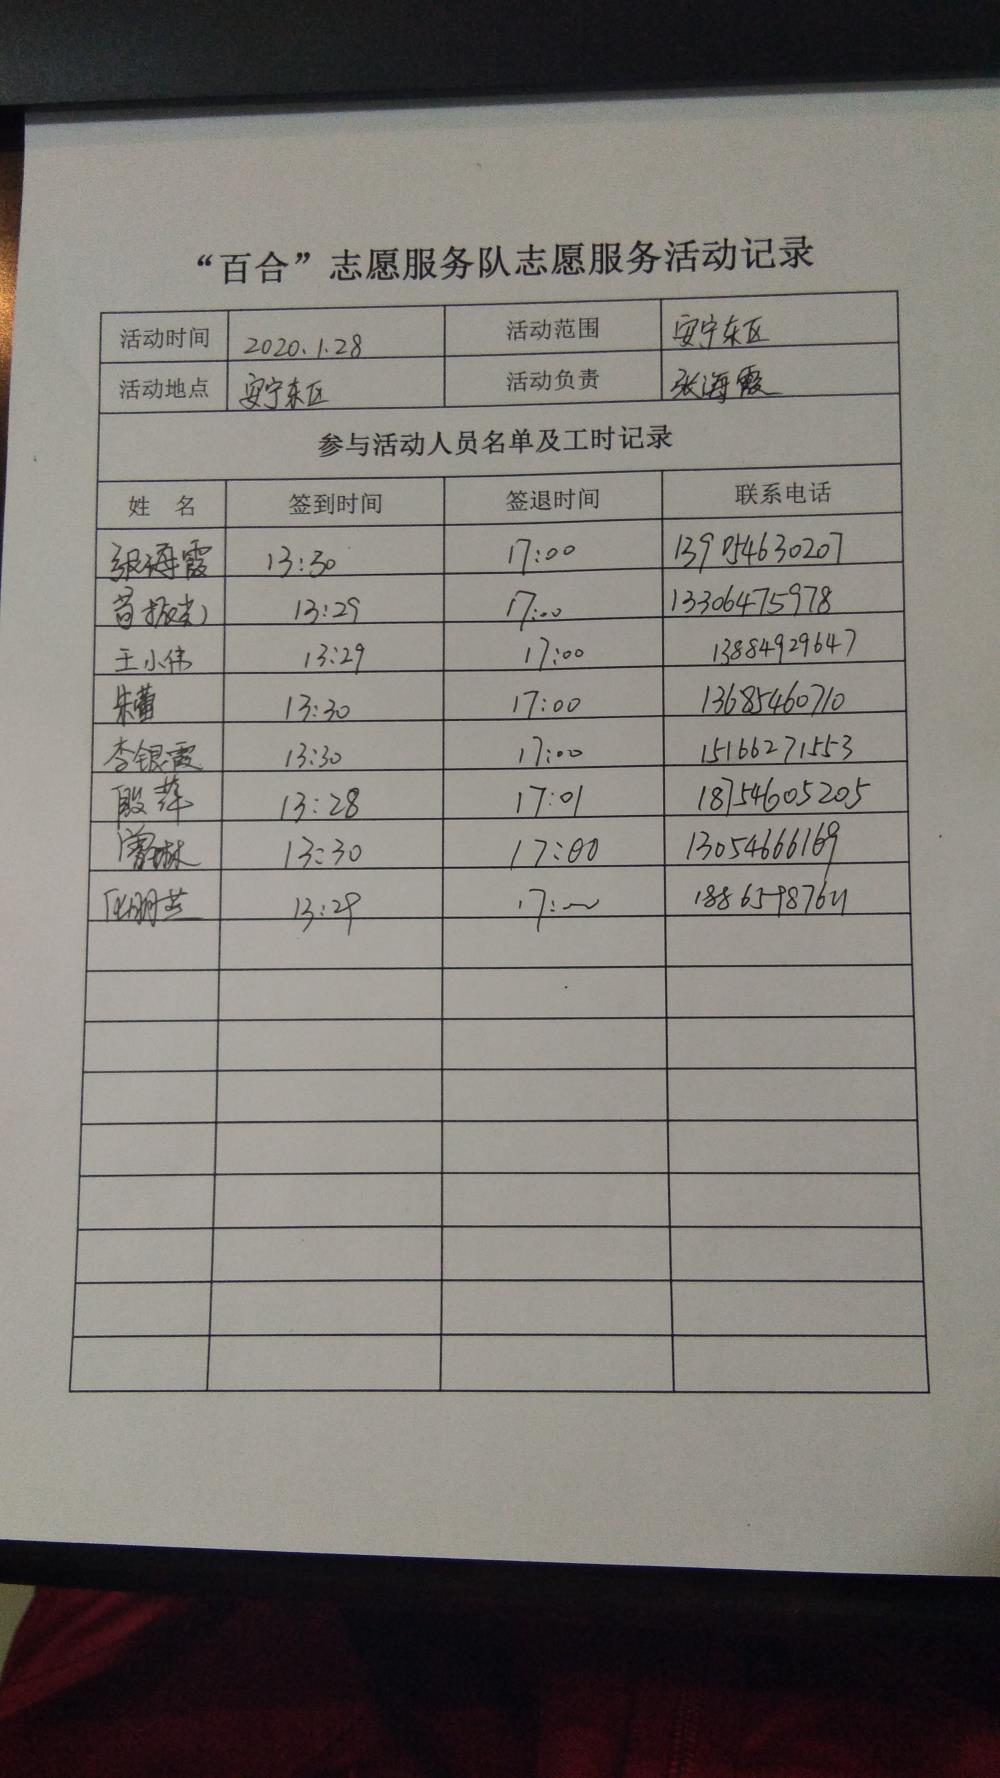 “百合”志愿服务队志愿服务活动记录
活动时间 2020.1.28 活动范围 安宁东区
活动地点 安宁东区 活动负责 张海霞
参与活动人员名单及工时记录
姓 名 签到时间 签退时间 联系电话
张海霞 13:30 17:00 139054630207
13:29 17:00 13306475978
王小伟 13:29 17:00 13884929647
朱蕾 13:30 17:00 13685460710
李银霞 13:30 17:00 15166271553
殷萍 13:28 17:01 18754605205
13:30 17:00 13054666169
13:29